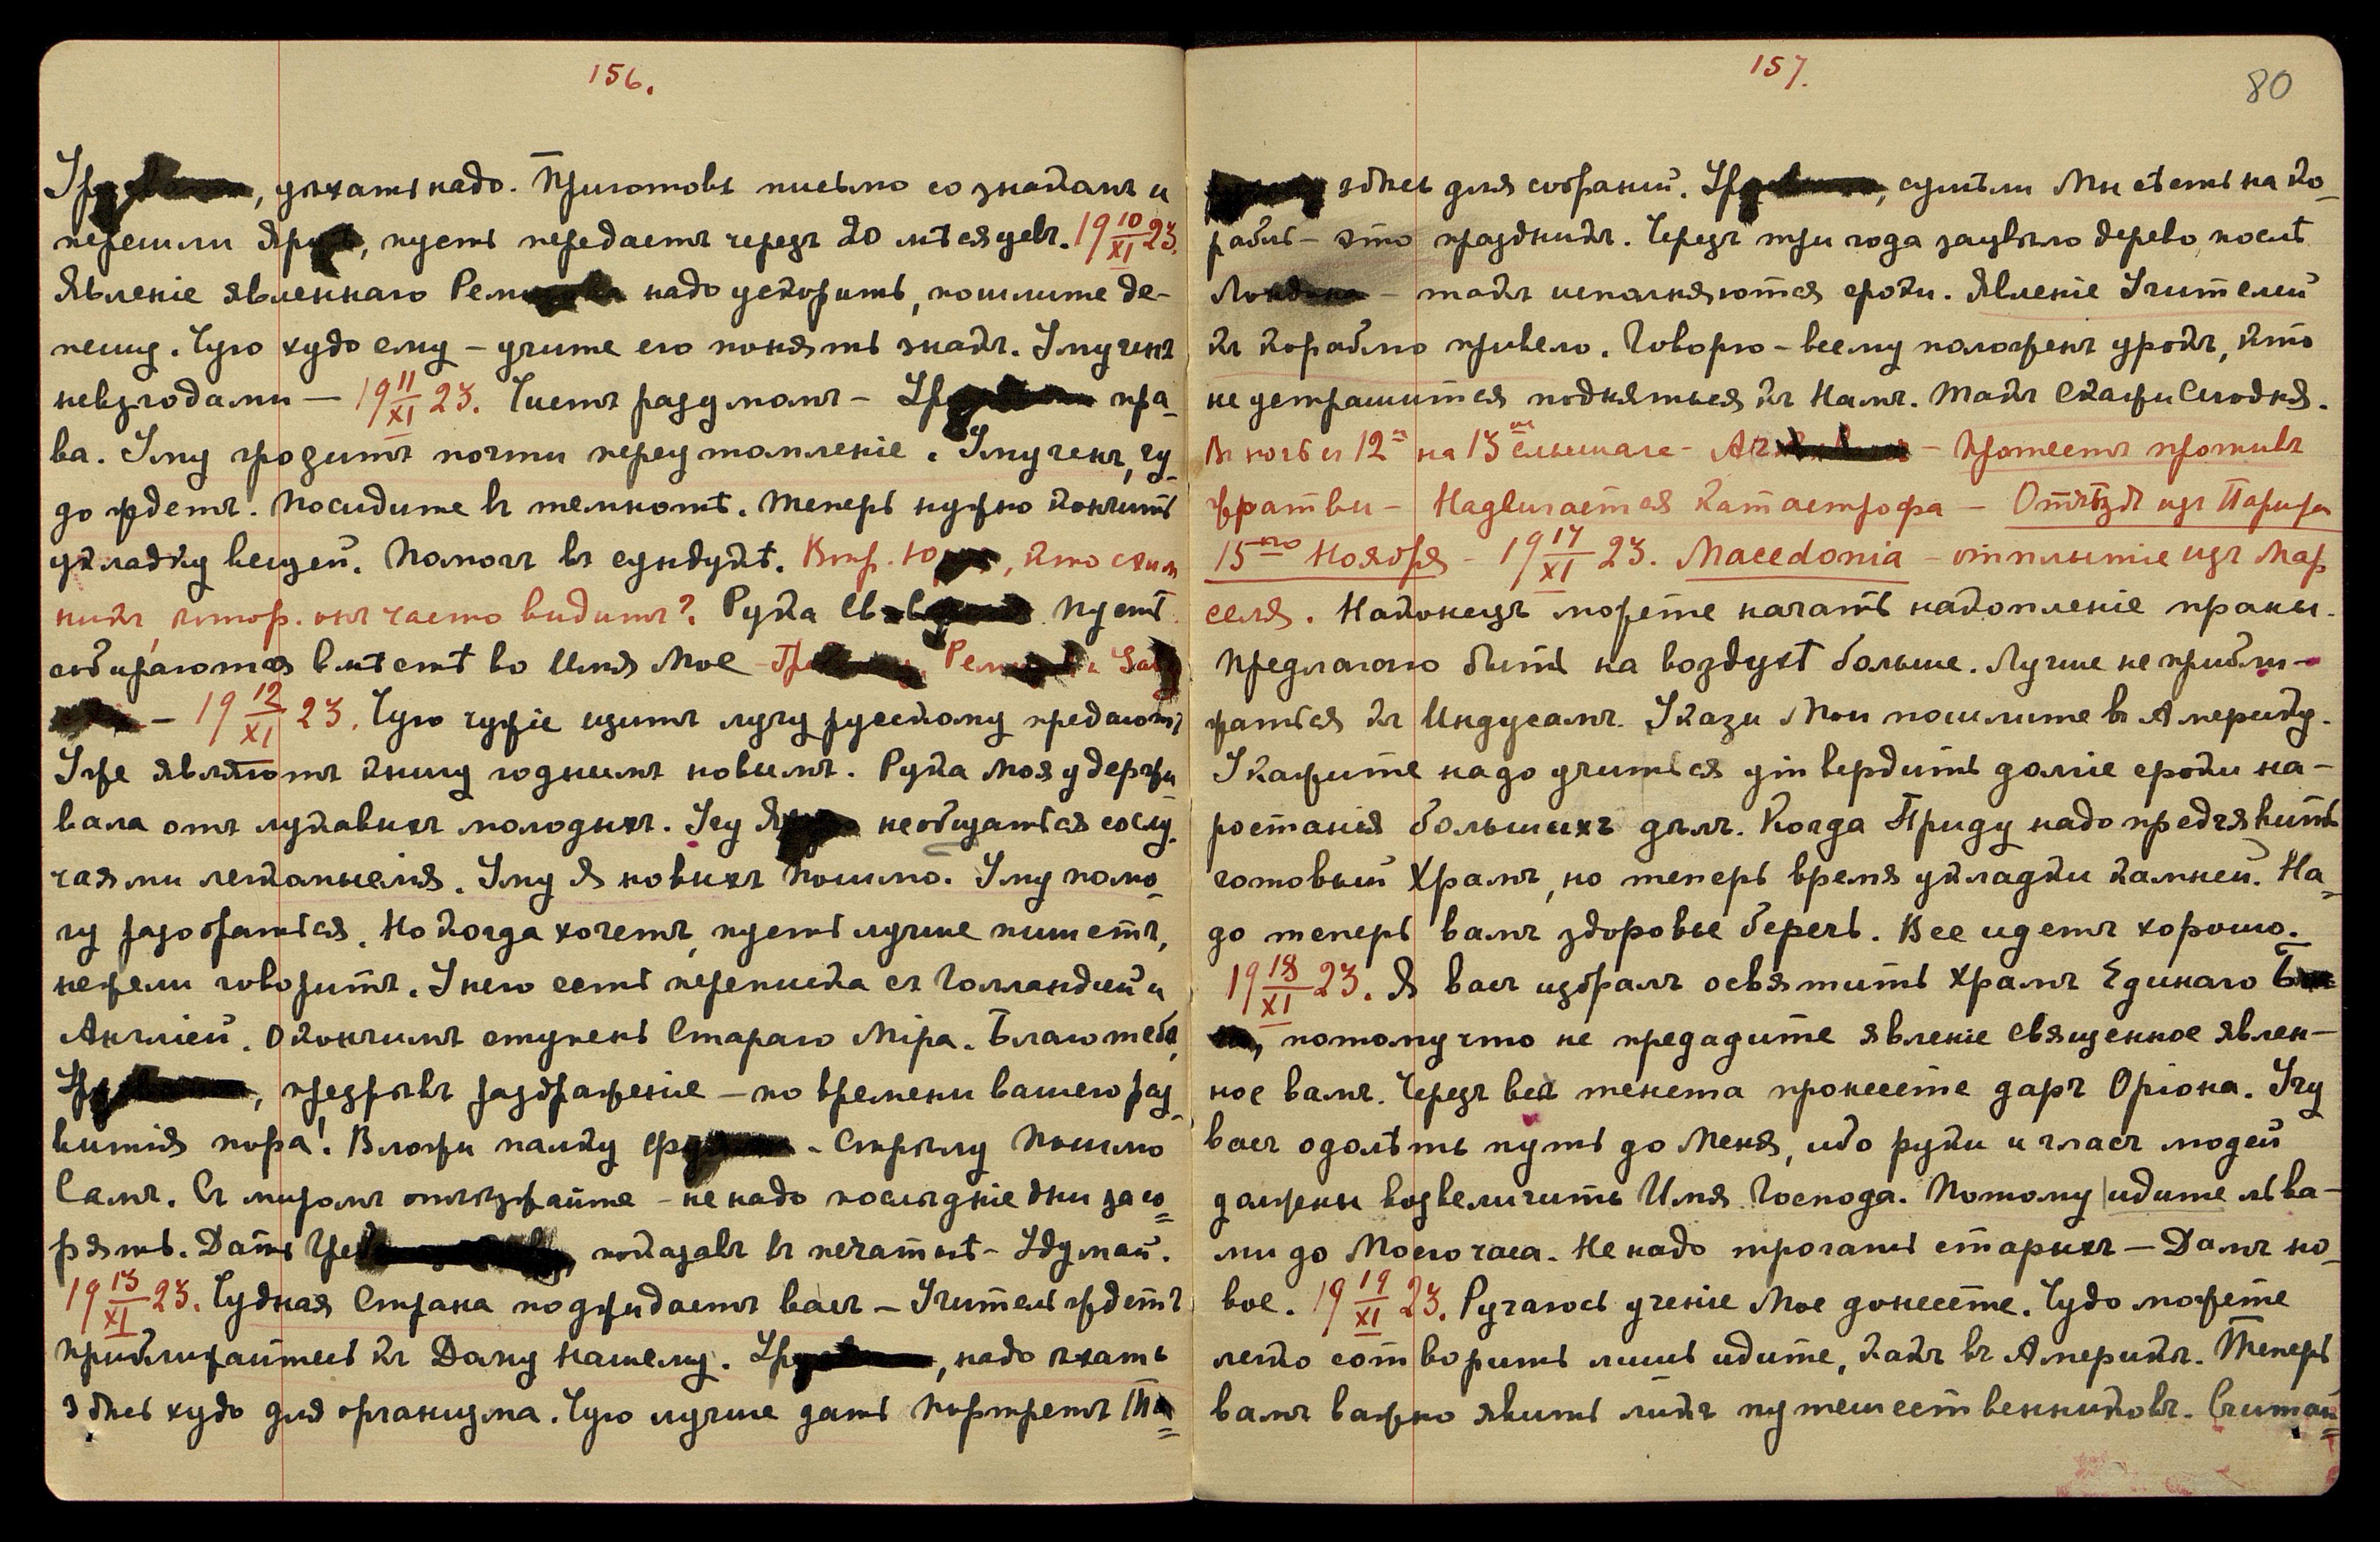 156.
Ур, уѣхать надо. Приготовь письмо со знакомъ и
перешли Яру, пусть передастъ черезъ 20 мѣсяцевъ. 19 10/XI 23.
Явленіе явленнаго Рем надо ускорить, пошлите де-
пешу. Чую худо ему – учите его понять знакъ. Измученъ
невзгодами – 19 11/XI 23. Чистъ разумомъ – Ур пра-
ва. Ему грозитъ почти переутомленіе. Измученъ, чу-
до ждетъ. Посидите въ темнотѣ. Теперь нужно кончить
укладку вещей. Помогъ въ сундукѣ. Втр. Ю, кто схим
никъ, котор. онъ часто видитъ? Рука Пусть
собираются вмѣстѣ во Имя Мое – Гр Рем и За
– 19 12/XI 23. Чую чужіе щитъ лучу русскому предаютъ
Уже являютъ книгу годнымъ новымъ. Рука Моя удержи
вала отъ лукавыхъ молодыхъ. Учу Я не общаться со слу-
чаями легкомыслія. Ему Я новыхъ Пошлю. Ему помо-
гу разобраться. Но когда хочетъ, пусть лучше пишетъ,
нежели говоритъ. У него есть переписка съ Голландіей и
Англіей. Окончимъ ступень Стараго Міра. Благо тебѣ,
Ур, презрѣвъ раздраженіе – по времени вашего раз-
витія пора! Вложи палку ф. Стрѣлу Пошлю
Самъ. Съ миромъ отъѣзжайте – не надо послѣдніе дни заго-
рять. Дать, показавъ въ печатнѣ – Удумай.
19 13/XI 23. Чудная Страна поджидаетъ васъ – Учитель ждетъ
приближайтесь къ Дому Нашему. Ур, надо ѣхать
здѣсь худо для организма. Чую лучше дать портретъ
157.
80
здѣсь для собраній. Ур, сумѣли Мы сѣсть на ко-
рабль – это праздникъ. Черезъ три года зацвѣло дерево послѣ
Лондона – такъ исполняются сроки. Явленіе Учителей
къ кораблю привело. Говорю – всему положенъ урокъ, кто
не устрашится подняться къ Намъ. Такъ Скажи Сегодня.
Въ ночь съ 12 на 13 слышала – – Протестъ противъ
жратвы – Надвигается катастрофа – Отъѣздъ изъ Парижа
15го Ноября – 19 17/XI 23. Macedonia – отплытіе изъ Мар
селя. Наконецъ можете начать накопленіе праны.
Предлагаю быть на воздухѣ больше. Лучше не прибли-
жаться къ Индусамъ. Указы Мои пошлите въ Америку.
Укажите надо учиться утвердить долгіе сроки на-
ростанія большихъ дѣлъ. Когда Приду надо предъявить
готовый Храмъ, но теперь время укладки камней. На-
до теперь вамъ здоровье беречь. Все идетъ хорошо.
19 18/XI 23. Я васъ избралъ освятить Храмъ Единаго
, потому что не предадите явленіе священное явлен-
ное вамъ. Черезъ всѣ тенета пронесете даръ Оріона. Учу
васъ одолѣть путь до Меня, ибо руки и гласъ людей
должны возвеличить Имя Господа. Потому идите львa-
ми до Моего часа. Не надо трогать старыхъ – Дамъ но-
вое. 19 19/XI 23. Ручаюсь ученіе Мое донесете. Чудо можете
легко сотворить лишь идите, какъ въ Америкѣ. Теперь
вамъ важно явить ликъ путешественниковъ. Считай